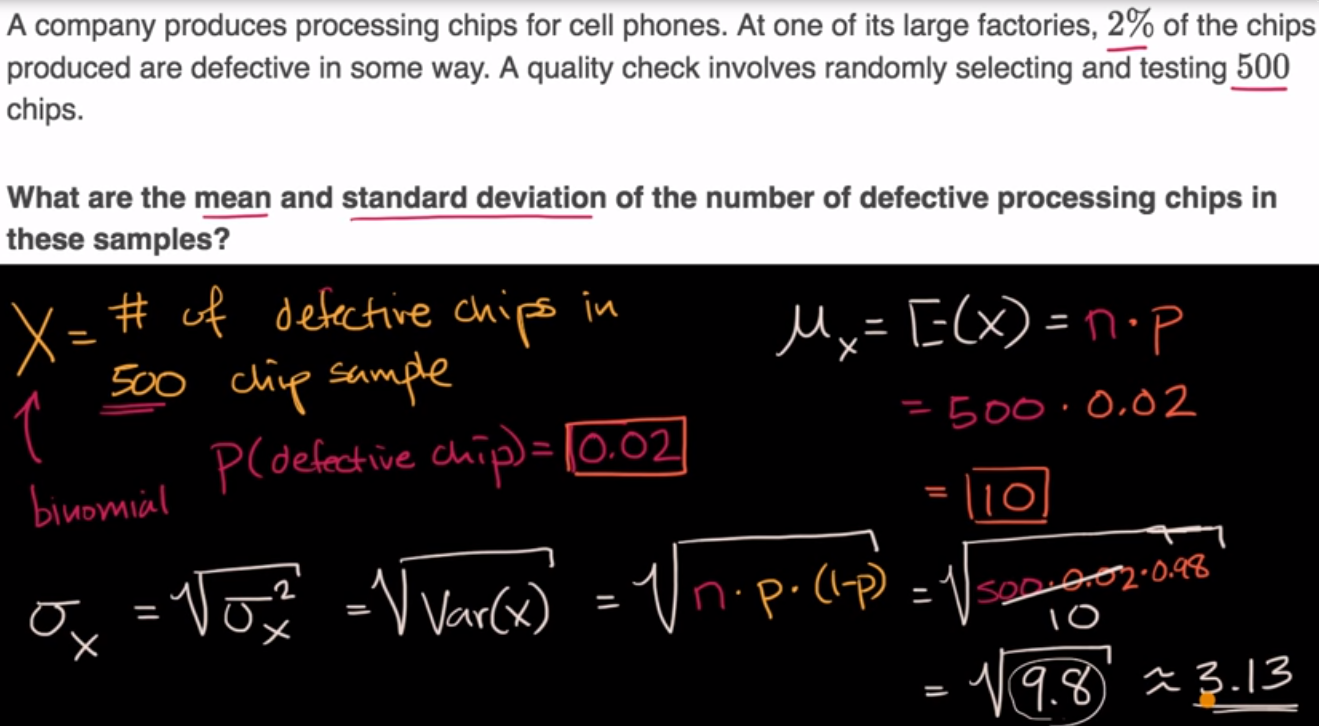 A company produces processing chips for cell phones. At one of its large factories, 2% of the chips
produced are defective in some way. A quality check involves randomly selecting and testing 500
chips.
What are the mean and standard deviation of the number of defective processing chips in
these samples?
X = # of defective chips in
500 chip sample
binomial
P(defective chip) = 0.02
μₓ = E(X) = n·p
= 500 · 0.02
= 10
σₓ = √σₓ² = √Var(X) = √n·p·(1-p) = √500·0.02·0.98
10
= √9.8 ≈ 3.13